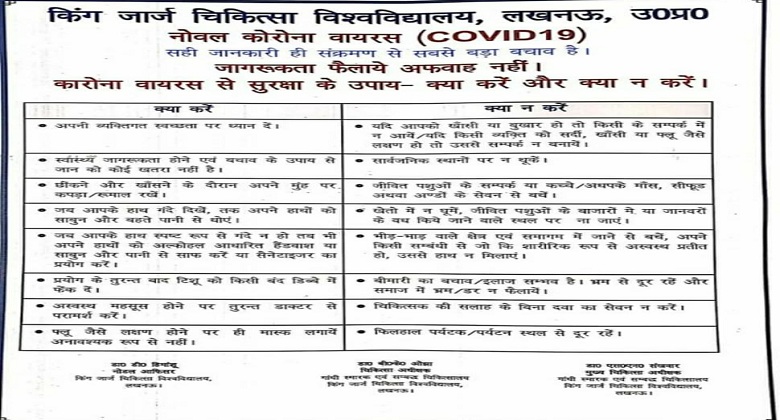 किंग जार्ज चिकित्सा विश्वविद्यालय, लखनऊ, उ0प्र0
नोवल कोरोना वायरस (COVID19)
सही जानकारी ही संक्रमण से सबसे बड़ा बचाव है।
जागरूकता फैलाये अफवाह नहीं।
कारोना वायरस से सुरक्षा के उपाय– क्या करें और क्या न करें।
क्या करें
क्या न करें
• अपनी व्यक्तिगत स्वच्छता पर ध्यान दें।
• यदि आपको खाँसी या बुखार हो तो किसी के सम्पर्क में
न आयें/यदि किसी व्यक्ति को सर्दी, खाँसी या फ्लू जैसे
लक्षण हो तो उससे सम्पर्क न बनायें।
• स्वास्थ्य जागरूकता होने एवं बचाव के उपाय से
जान को कोई खतरा नहीं है।
• सार्वजनिक स्थानों पर न थूकें।
• छींकने और खाँसने के दौरान अपने मुंह पर
कपड़ा/रूमाल रखें।
• जीवित पशुओं के सम्पर्क या कच्चे/अधपके माँस, सीफूड
अथवा अण्डों के सेवन से बचें।
• जब आपके हाथ गंदे दिखें, तक अपने हाथों को
साबुन और बहते पानी से धोएं।
• खेती में न घूमें, जीवित पशुओं के बाजारों मे या जानवरों
के वध किये जाने वाले स्थल पर ना जाएं।
• जब आपके हाथ स्पष्ट रूप से गंदे न हो तब भी
अपने हाथों को अल्कोहल आधारित हैंडवाश या
साबुन और पानी से साफ करें या सैनेटाइजर का
प्रयोग करें।
• भीड़-भाड़ वाले क्षेत्र एवं समागम में जाने से बचें, अपने
किसी सम्बंधी से जो कि शारीरिक रूप से अस्वस्थ प्रतीत
हो, उससे हाथ न मिलाएं।
• प्रयोग के तुरन्त बाद टिशू को किसी बंद डिब्बे में
फेंक दें।
• बीमारी का बचाव/इलाज सम्भव है। भ्रम से दूर रहें और
समाज में भ्रम/डर न फैलायें।
• अस्वस्थ महसूस होने पर तुरन्त डाक्टर से
परामर्श करें।
• चिकित्सक की सलाह के बिना दवा का सेवन न करें।
• फ्लू जैसे लक्षण होने पर ही मास्क लगायें
अनावश्यक रूप से नहीं।
• फिलहाल पर्यटक/पर्यटन स्थल से दूर रहें।
डा0 डी0 हिमांशु
नोडल आफिसर
किंग जार्ज चिकित्सा विश्वविद्यालय,
लखनऊ।
डा0 बी0के0 ओझा
चिकित्सा अधीक्षक
गांधी स्मारक एवं सम्बद्ध चिकित्सालय
किंग जार्ज चिकित्सा विश्वविद्यालय,
लखनऊ।
डा0 एस0एन0 संखवार
मुख्य चिकित्सा अधीक्षक
गांधी स्मारक एवं सम्बद्ध चिकित्सालय
किंग जार्ज चिकित्सा विश्वविद्यालय,
लखनऊ।